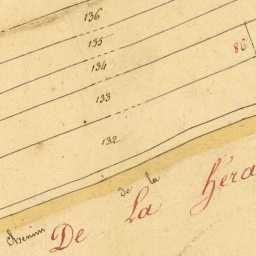 136
135
134
133
132
86
chemin de la
De La héra